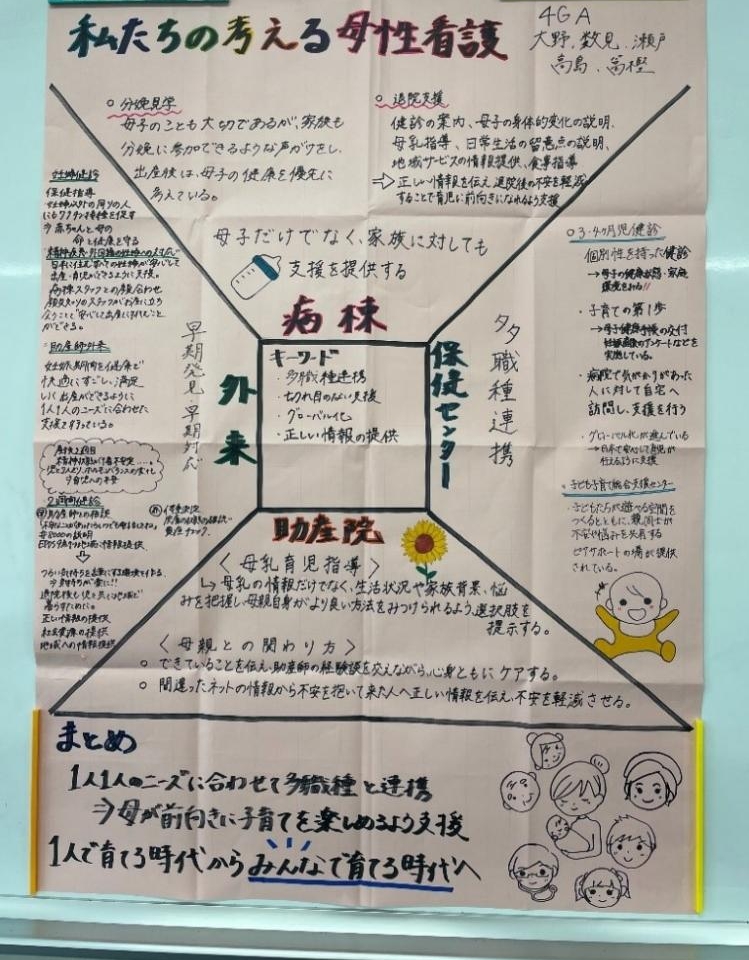 私たちの考える母性看護
4GA
大野、数見、瀬戸
高島、富樫
○ 分娩見学
母子のことも大切であるが、家族も
分娩に参加できるような声がけをし、
出産後は、母子の健康を優先に
考えている。
○ 退院支援
健診の案内、母子の身体的変化の説明、
母乳指導、日常生活の留意点の説明、
地域サービスの情報提供、食事指導
⇨正しい情報を伝え退院後の不安を軽減
することで育児に前向きになれるよう支援
母子だけでなく、家族に対しても
支援を提供する
病棟
妊婦健診
保健指導
命と健康を守る
早期発見 早期対応
外来
・助産師外来
快適にすごし、満足
しく出産ができるように
1人1人のニーズに合わせた
支援を行っている。
2週間健診
正しい情報の提供
社会資源の提供
地域への情報提供
キーワード
・多職種連携
・切れ目のない支援
・グローバル化
・正しい情報の提供
保健センター
多職種連携
○3・4ヶ月児健診
個別性を持った健診
・子育ての第1歩
→母子健康手帳の交付
妊娠届のアンケートなどを
実施している。
・病院で気がかりがあった
人に対して自宅へ
訪問し、支援を行う
・グローバル化が進んでいる
→日本で安心して育児が
行えるように支援
○子ども子育て総合支援センター
・子どもたちが遊べる空間を
つくるとともに、親同士が
不安や悩みを共有する
ピアサポートの場が提供
されている。
助産院
〈母乳育児指導〉
↳母乳の情報だけでなく、生活状況や家族背景、悩
みを把握し、母親自身がより良い方法をみつけられるよう、選択肢を
提示する。
〈母親との関わり方〉
○ できていることを伝え、助産師の経験談を交えながら、心身ともにケアする。
○ 間違ったネットの情報から不安を抱いて来た人へ正しい情報を伝え、不安を軽減させる。
まとめ
1人1人のニーズに合わせて多職種と連携
⇒母が前向きに子育てを楽しめるよう支援
1人で育てる時代からみんなで育てる時代へ